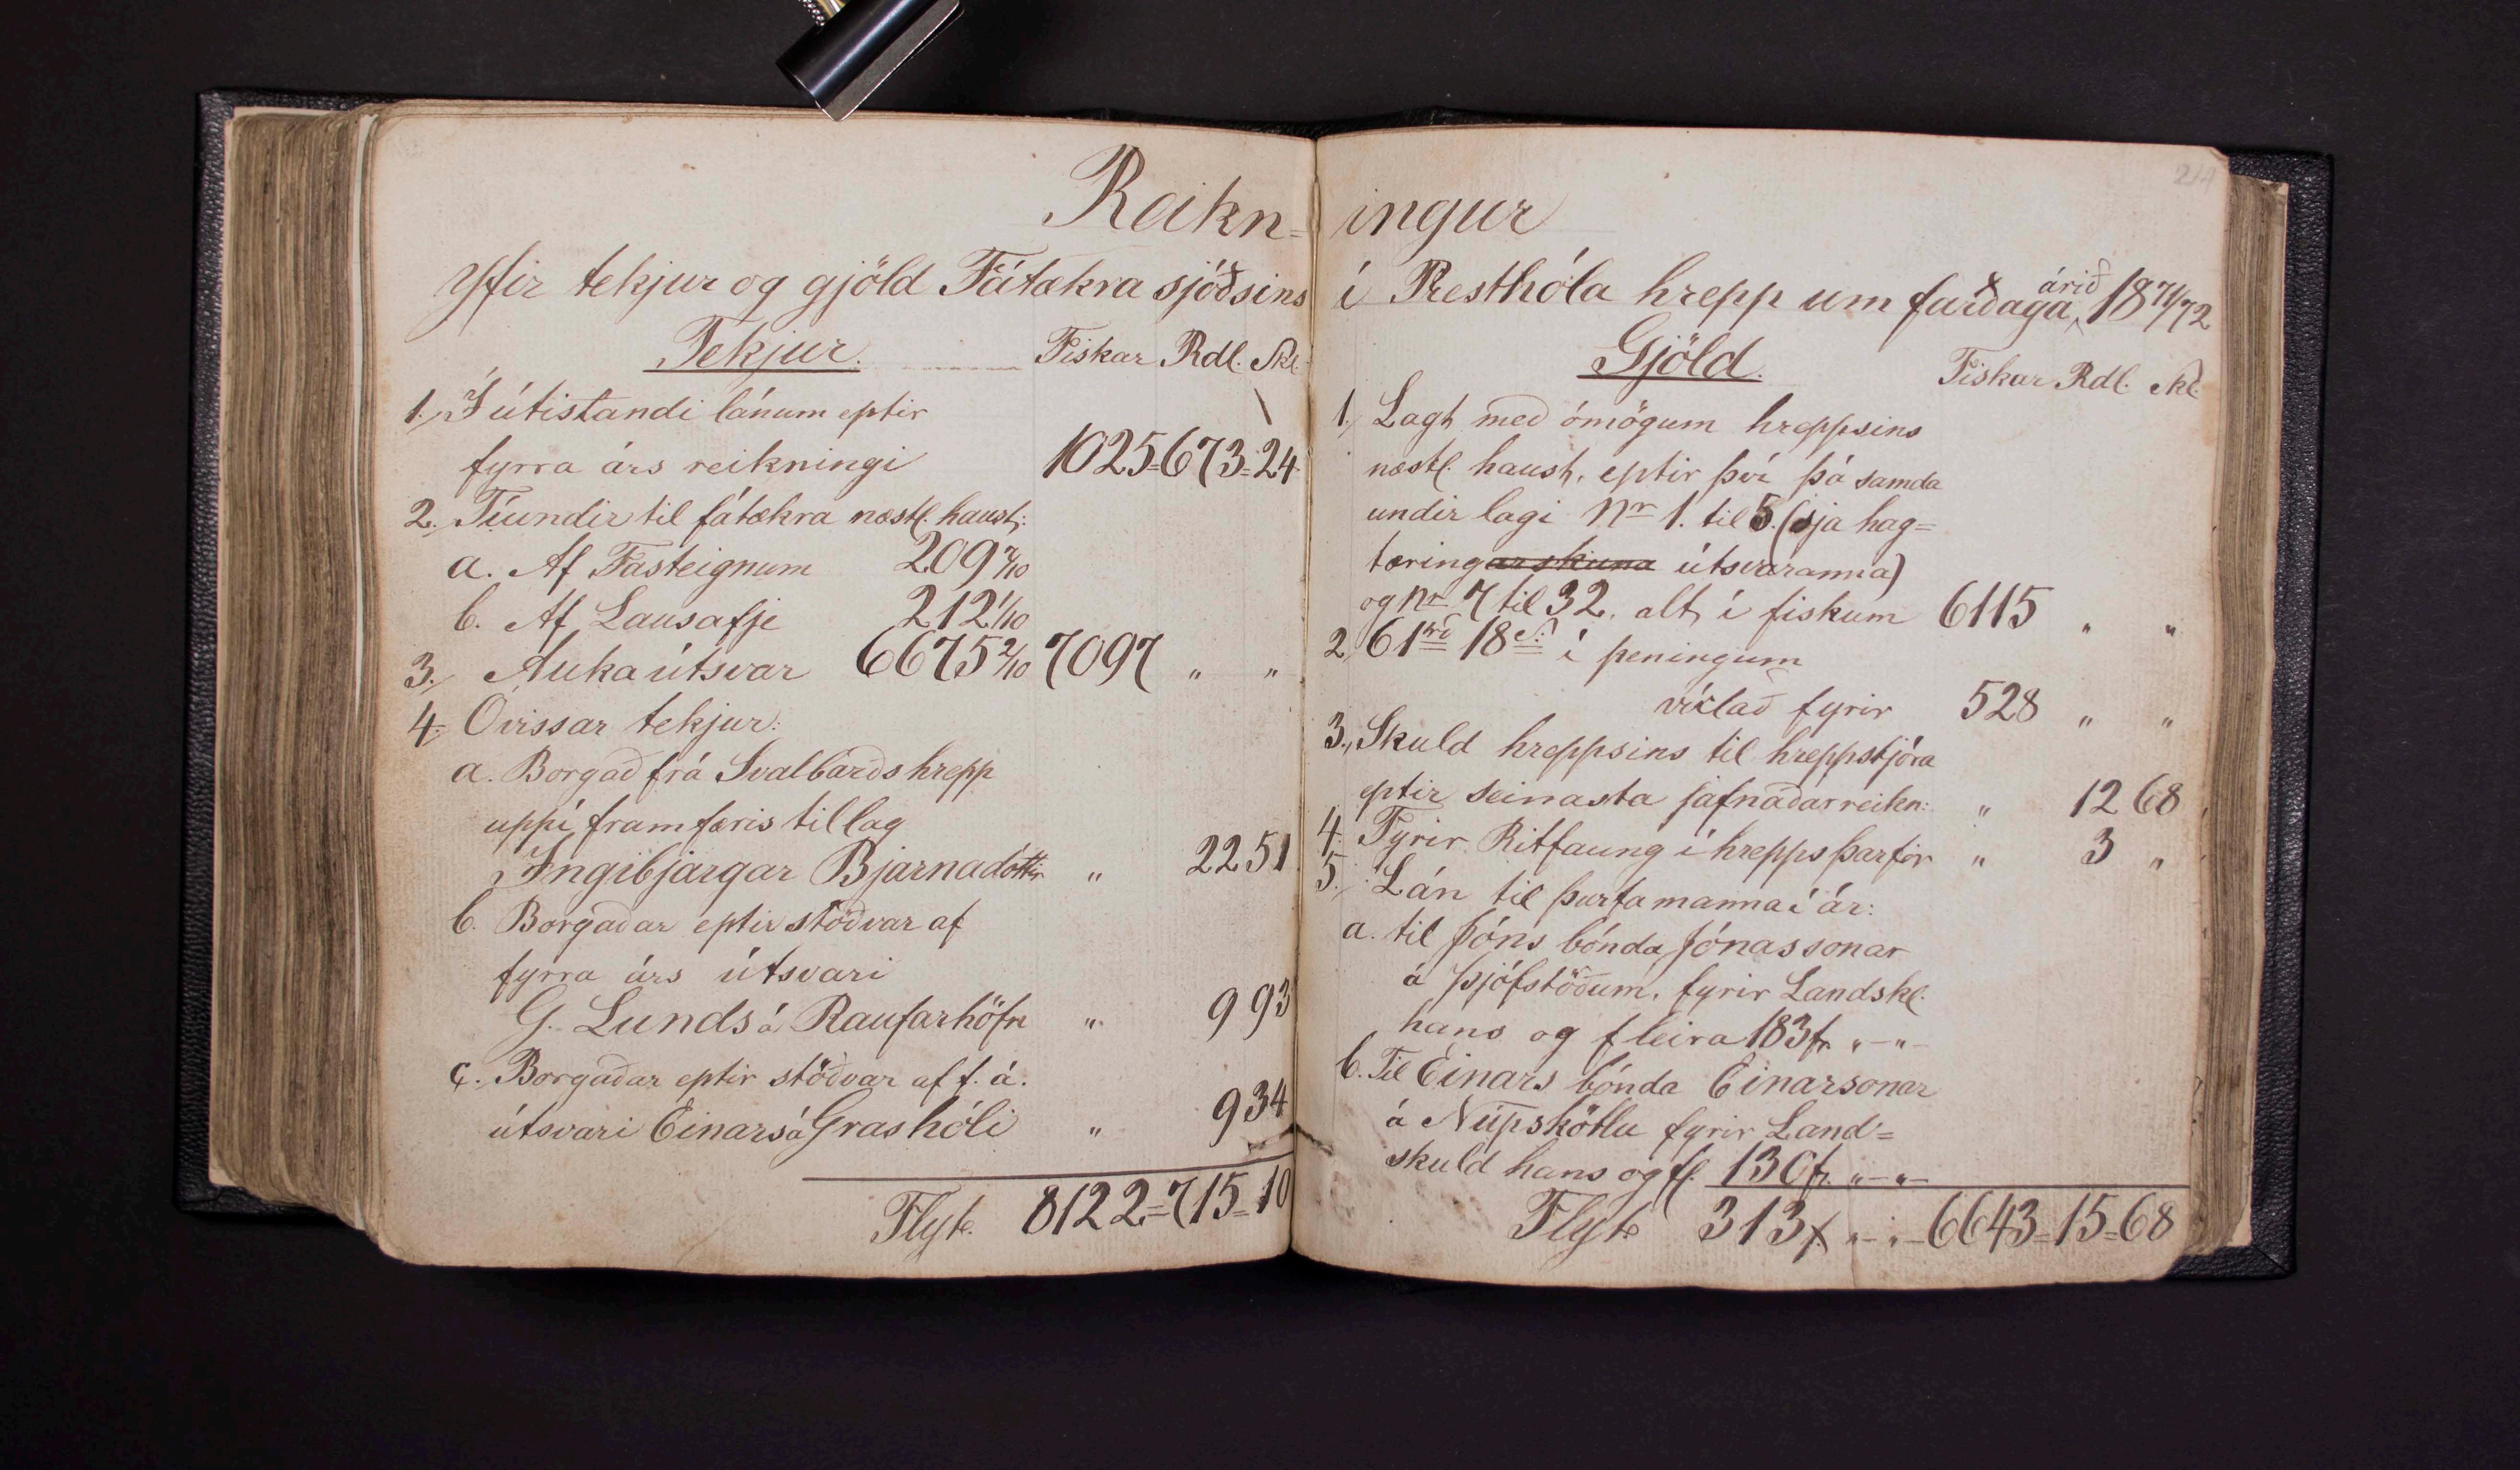 Reikn=
yfir tekjur og gjöld Fátækra sjóðsins
Tekjur. Fiskar Rdl. Skl.
1. Í útistandi lánum eptir
fyrra árs reikningi 1025=673=24
2. Tíundir til fátækra næstl. haust:
a. Af Fasteignum 209 7/10
b. Af Lausafje 212 1/10
3. Auka útsvar 6675 2/10 7097 " "
4. Óvissar tekjur:
a. Borgað frá Svalbarðs hrepp
uppí framfæris tillag
Ingibjargar Bjarnadóttir " 22 51
b. Borgaðar eptir stöðvar af
fyrra árs útsvari
G. Lunds á Raufarhöfn " 9 93
c. Borgaðar eptir stöðvar af f. á.
útsvari Einars á Grashóli " 9 34
Flyt. 8122=715=10
214
ingur
í Presthóla hrepp um fardaga árið 18 71/72
Gjöld. Fiskar Rdl. Skl.
1. Lagt með ómögum hreppsins
næstl. haust, eptir því þá samda
undir lagi Nr 1. til 5. (sja hag=
tæringarskuna útsvaranna)
og Nr 7 til 32. alt í fiskum 6115 " "
2. 61 rd 18 s. í peningum
víxlað fyrir 528 " "
3. Skuld hreppsins til hreppstjóra
eptir seinasta jafnaðarreikn: " 12 68
4. Fyrir Ritfaung í hrepps þarfir " 3 "
5. Lán til þurfamanna í ár:
a. til Jóns bónda Jónassonar
á Þjófstöðum, fyrir Landskl.
hans og fleira 183 f. "-"-
b. Til Einars bónda Einarsonar
á Núpskötlu fyrir Land=
skuld hans og fl. 130 f. "-"-
Flyt 313 f. "-"- 6643=15=68